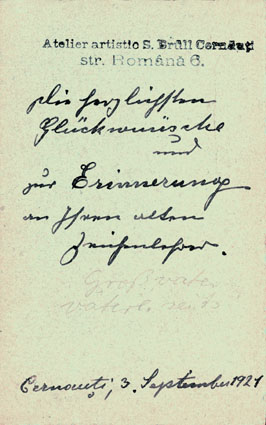 Atelier artistic S. Brüll Cernăuți
str. Română 6.
Die herzlichsten
Glückwünsche
und
zur Erinnerung
an Ihren alten
Zeichenlehrer.
Großvater
väterl. seits
Cernăuți, 3. September 1921